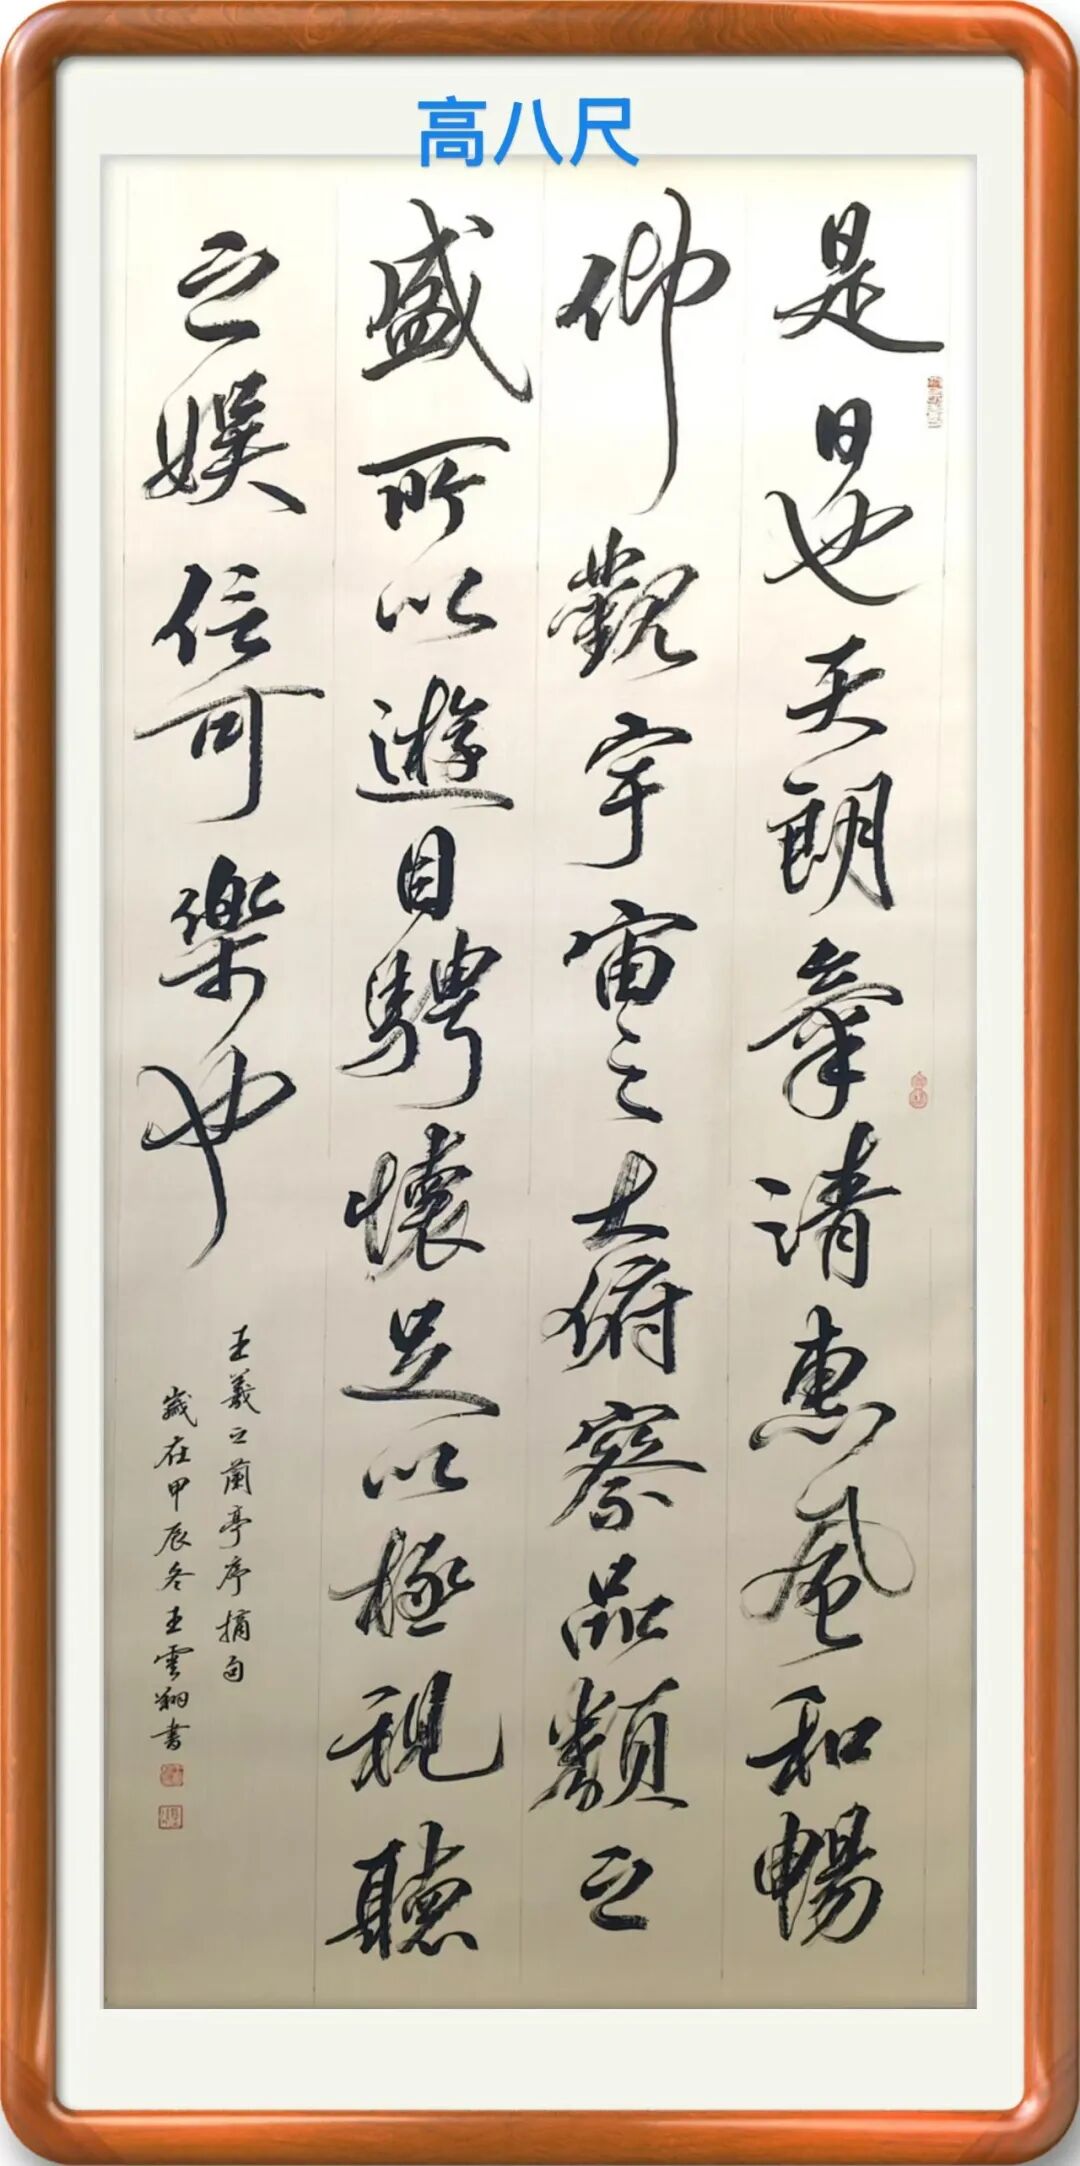 高八尺
是日也天朗氣清惠風和暢
仰觀宇宙之大俯察品類之
盛所以遊目騁懷足以極視聽
之娱信可樂也
王羲之蘭亭序摘句
歲在甲辰冬王雲翔書